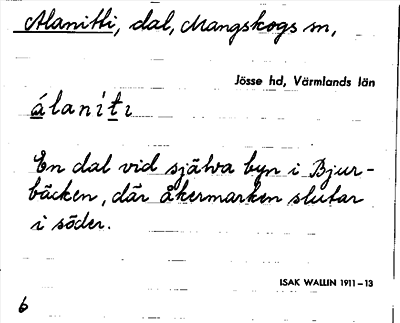 Alanitti, dal, Mangskogs sn,
Jösse hd, Värmlands län
álanítı
En dal vid själva byn i Bjur-
bäcken, där åkermarken slutar
i söder.
ISAK WALLIN 1911–13
6